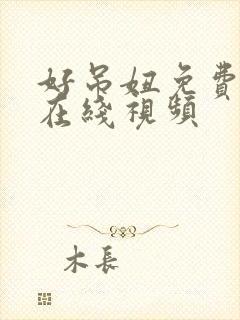 好吊妞免費
在綫視頻
木長